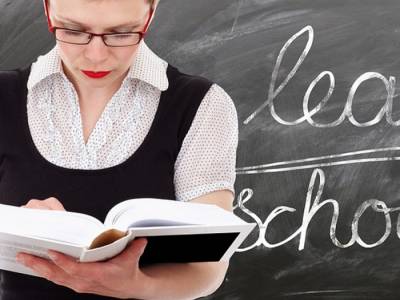 lea
schoo